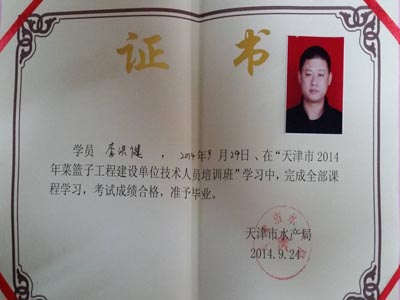 证 书
学员 李洪健 ,2014年9月29日、在“天津市2014
年菜篮子工程建设单位技术人员培训班”学习中,完成全部课
程学习,考试成绩合格,准予毕业。
天津市水产局
2014.9.24